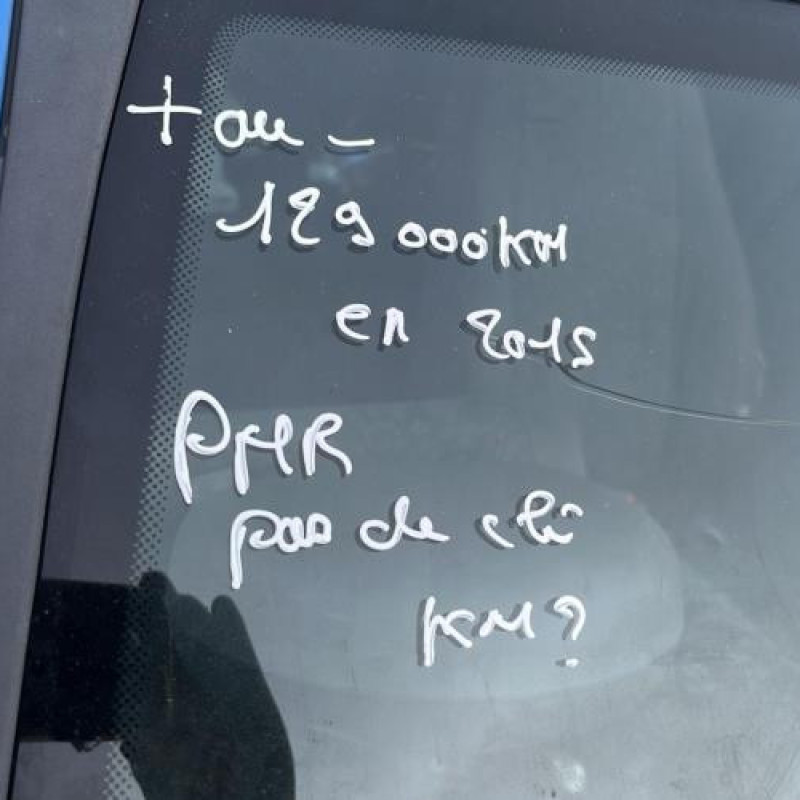 + ou -
129000KM
en 2015
PMR
pas de clé
KM?